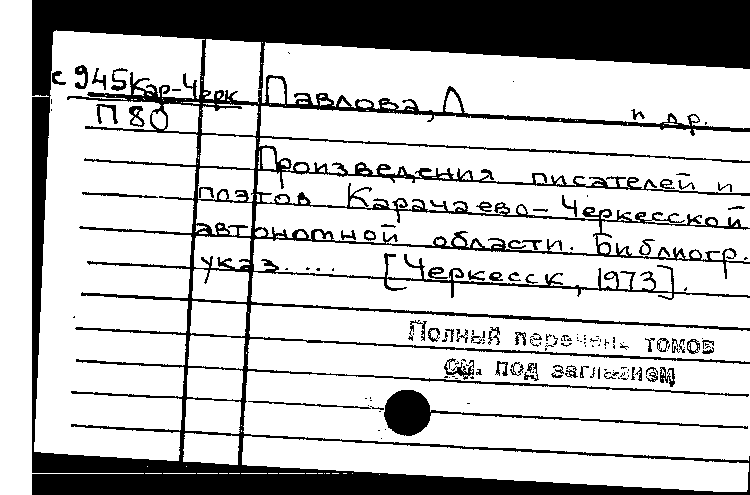 с 945 Кар-Черк Павлова, Л и др.
П 80
Произведения писателей и
поэтов Карачаево-Черкесской
автономной области. Библиогр.
указ. ... [Черкесск, 1973].
Полный перечень томов
см. под заглавием